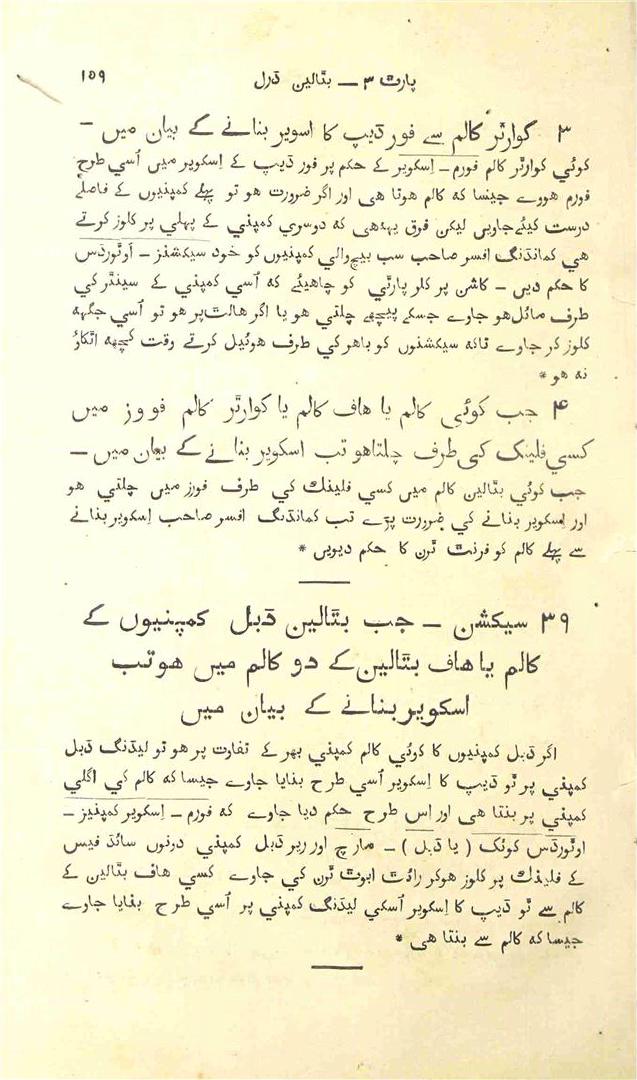 پارٹ ۳ — بٹالین ڈرل ۱۵۹
۳ گوارٹر کالم سے فور ڈیپ کا اسویر بنانے کے بیان میں —
کوئي کوارٹر کالم فورم — اِسکویر کے حکم پر فور ڈیپ کے اِسکویر میں اُسي طرح
فورم هووے جیسا که کالم هوتا هی اور اگر ضرورت هو تو پہلے کمپنیوں کے فاصلے
درست کیئے جاویں لیکن فرق یہہ هی که دوسري کمپني کے پہلی پر کلوز کرتے
هی کمانڈنگ افسر صاحب سب بیچ والي کمپنیوں کو خود سیکشنز — اَوٹورڈس
کا حکم دیں — کاشن پر کلر پارٹي کو چاهیئے که اُسي کمپني کے سینٹر کي
طرف مائل هو جاوے جسکے پیچھے چلتي هو یا اگر هالٹ پر هو تو اُسي جگہه
کلوز کر جاوے تاکه سیکشنوں کو باهر کي طرف هوئیل کرتے وقت کچھه اٹکاؤ
نه هو *
۴ جب کوئي کالم یا هاف کالم یا کوارٹر کالم فوورز میں
کسي فلینک کی طرف چلتا هو تب اسکویر بنانے کے بیان میں —
جب کوئي بٹالین کالم میں کسي فلینک کي طرف فورز میں چلتي هو
اور اِسکویر بنانے کي ضرورت پڑے تب کمانڈنگ افسر صاحب اِسکویر بنانے
سے پہلے کالم کو فرنٹ ٹرن کا حکم دیویں *
۳۹ سیکشن — جب بٹالین ڈبل کمپنیوں کے
کالم یا هاف بٹالین کے دو کالم میں هو تب
اسکویر بنانے کے بیان میں
اگر ڈبل کمپنیوں کا کوئي کالم کمپني بھر کے تفاوت پر هو تو لیڈنگ ڈبل
کمپني پر ٹو ڈیپ کا اِسکویر اُسي طرح بنایا جاوے جیسا که کالم کي اگلي
کمپني پر بنتا هی اور اِس طرح حکم دیا جاوے که فورم — اِسکویر کمپنیز —
اوٹورڈس کوئک ( یا ڈبل ) — مارچ اور ریر ڈبل کمپني دونوں سائڈ فیس
کے فلینک پر کلوز هو کر رائٹ ابوٹ ٹرن کي جاوے کسي هاف بٹالین کے
کالم سے ٹو ڈیپ کا اِسکویر اُسکي لیڈنگ کمپني پر اُسي طرح بنایا جاوے
جیسا که کالم سے بنتا هی *